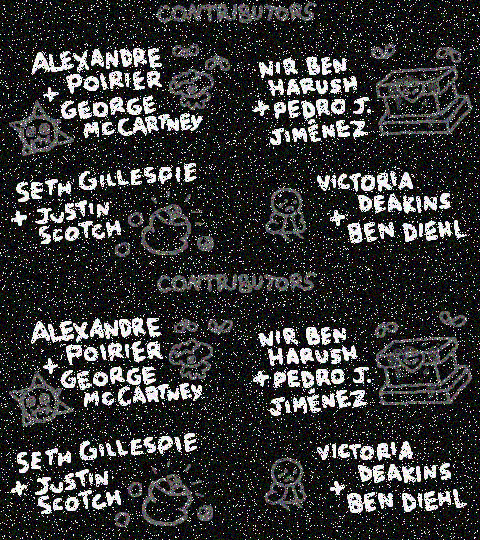 CONTRIBUTORS
ALEXANDRE
POIRIER
+ GEORGE
MCCARTNEY
NIR BEN
HARUSH
+ PEDRO J.
JIMÉNEZ
SETH GILLESPIE
+ JUSTIN
SCOTCH
VICTORIA
DEAKINS
+
BEN DIEHL
CONTRIBUTORS
ALEXANDRE
POIRIER
+ GEORGE
MCCARTNEY
NIR BEN
HARUSH
+ PEDRO J.
JIMÉNEZ
SETH GILLESPIE
+ JUSTIN
SCOTCH
VICTORIA
DEAKINS
+
BEN DIEHL